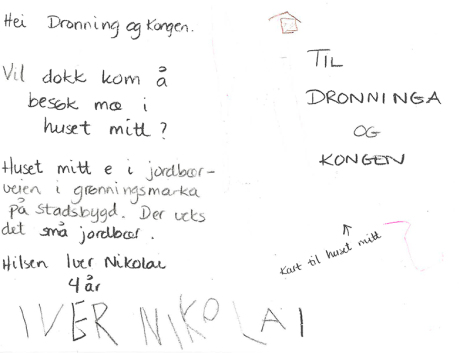 Hei Dronning og Kongen.
Vil dokk kom å
besøk mæ i
huset mitt?
Huset mitt e i jordbær-
veien i grønningsmarka
på Stadsbygd. Der veks
det små jordbær.
Hilsen Iver Nikolai
4 år
IVER NIKOLAI
TIL
DRONNINGA
OG
KONGEN
Kart til huset mitt